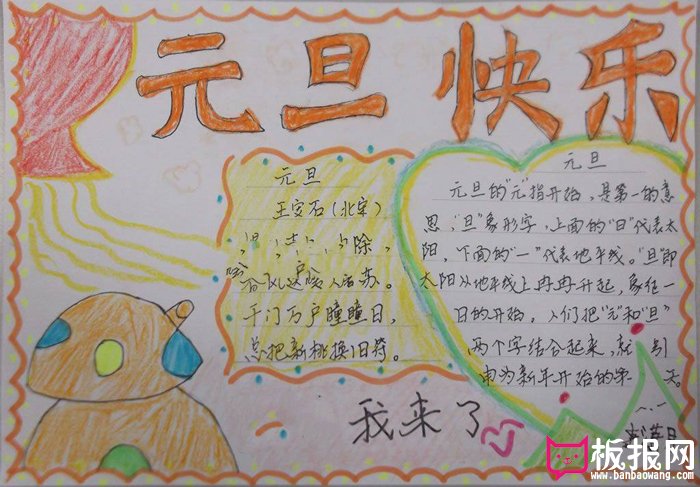 元旦快乐
元旦
王安石(北宋)
除,
春风送暖入屠苏。
千门万户瞳瞳日,
总把新桃换旧符。
元旦
元旦的"元"指开始,是第一的意
思,"旦"象形字,上面的"日"代表太
阳,下面的"一"代表地平线。"旦"即
太阳从地平线上冉冉升起,象征一
日的开始,人们把"元"和"旦"
两个字结合起来,就 引
申为新年开始的第 天。
我来了
板报网
www.banbaowang.com